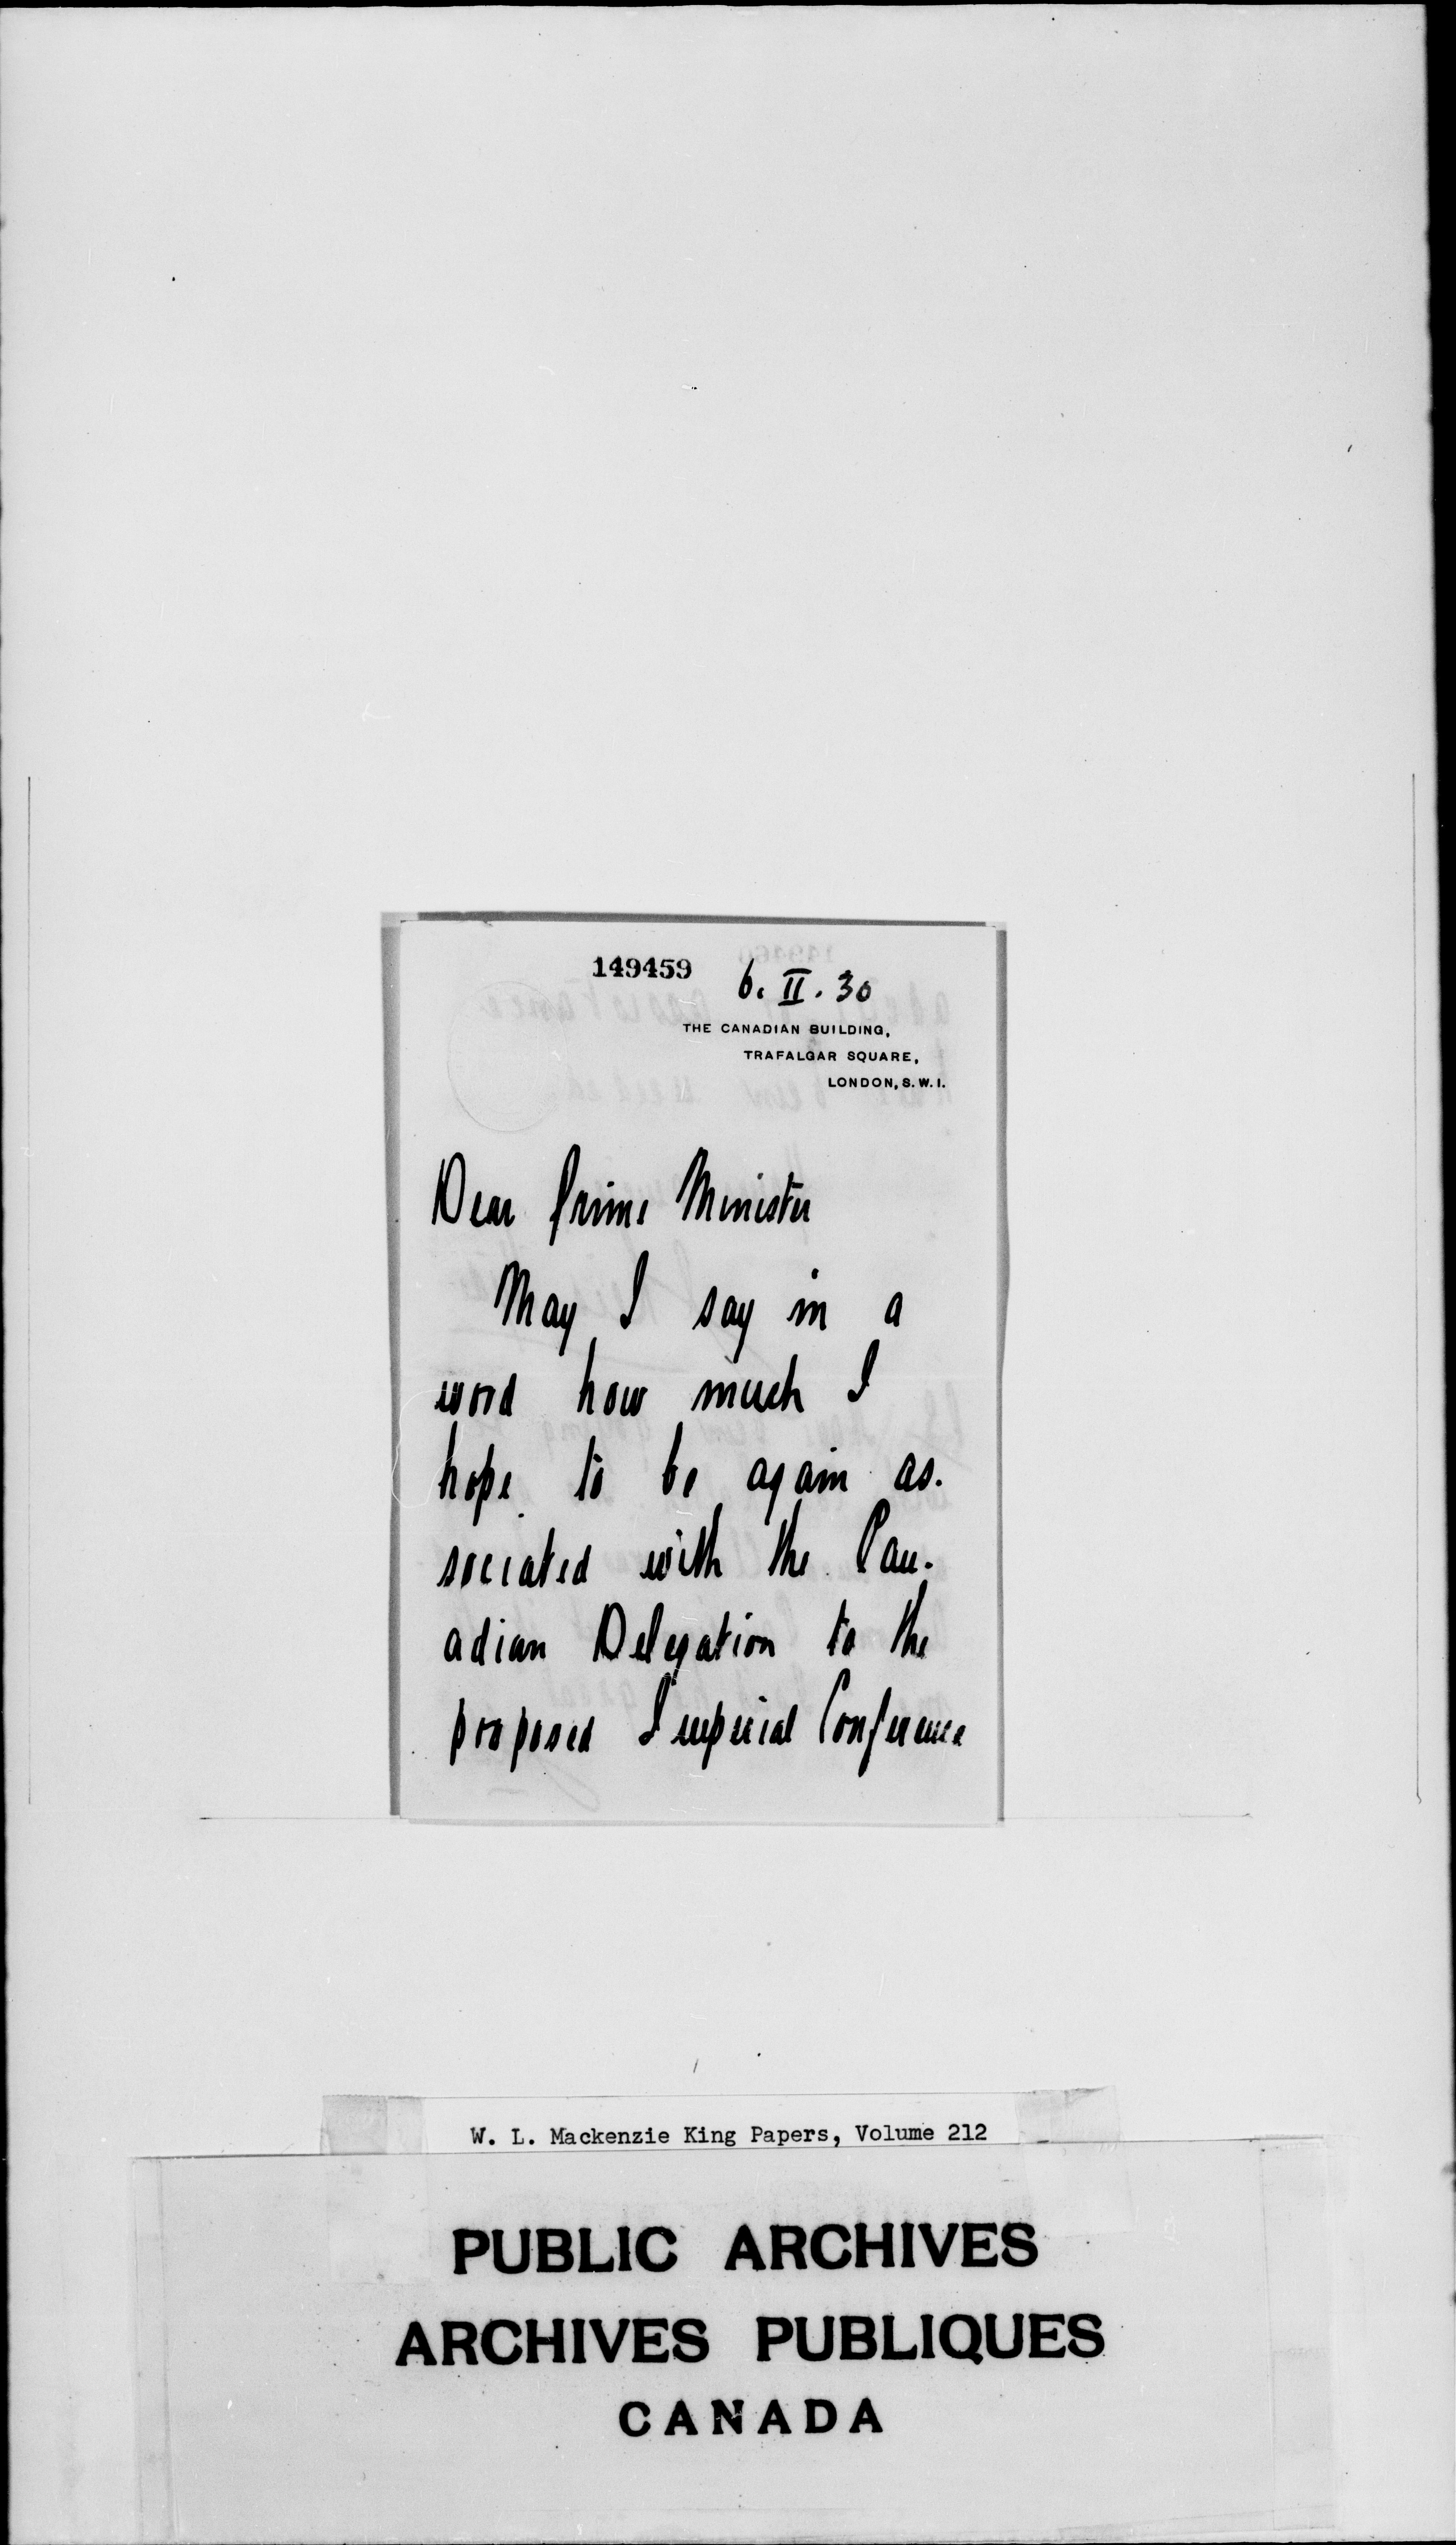 149459
6. II. 30
THE CANADIAN BUILDING,
TRAFALGAR SQUARE,
LONDON, S.W.1.
Dear Prime Minister
May I say in a
word how much I
hope to be again as-
sociated with the Can-
adian Delegation to the
proposed Imperial Conference
W. L. Mackenzie King Papers, Volume 212
PUBLIC ARCHIVES
ARCHIVES PUBLIQUES
CANADA